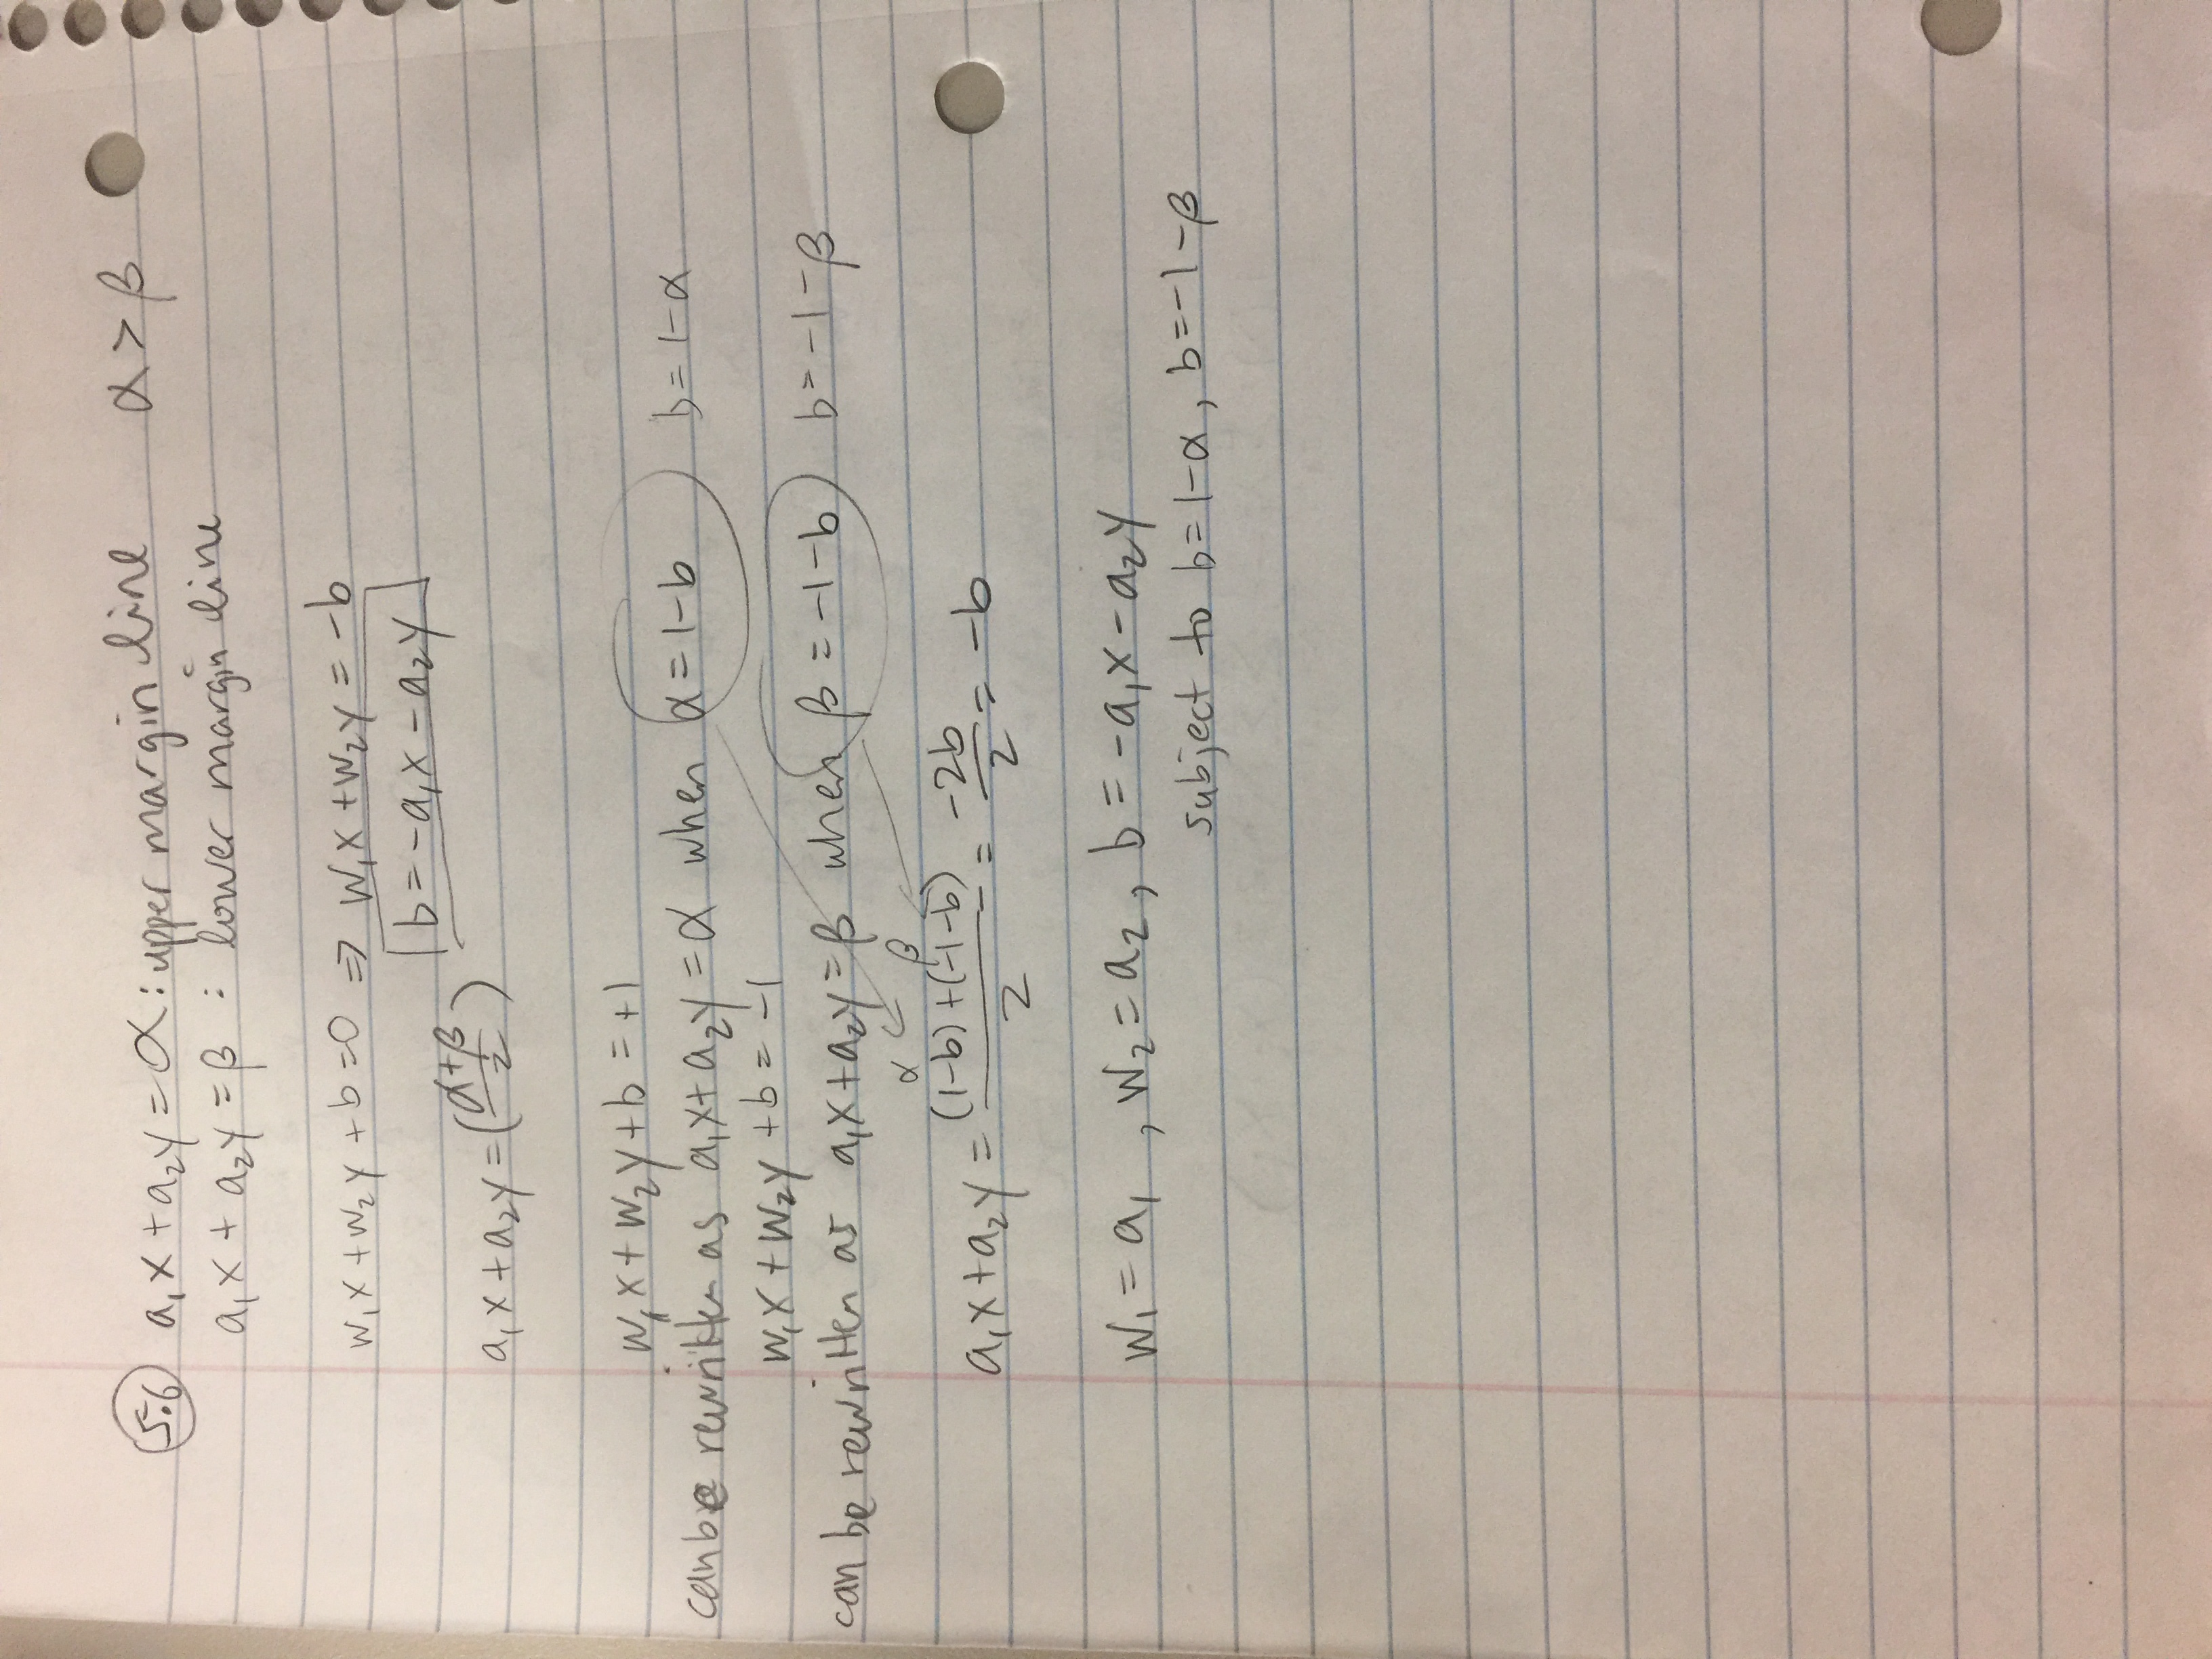 5.6 a₁x + a₂y = α : upper margin line α > β
a₁x + a₂y = β : lower margin line
w₁x + w₂y + b = 0 ⇒ w₁x + w₂y = -b
b = -a₁x - a₂y
a₁x + a₂y = ((α+β)/2)
w₁x + w₂y + b = +1
can be rewritten as a₁x + a₂y = α when α = 1-b b = 1-α
w₁x + w₂y + b = -1
can be rewritten as a₁x + a₂y = β when β = -1-b b = -1-β
α β
a₁x + a₂y = ((1-b)+(-1-b))/2 = -2b/2 = -b
w₁ = a₁, w₂ = a₂, b = -a₁x - a₂y
subject to b = 1-α, b = -1-β